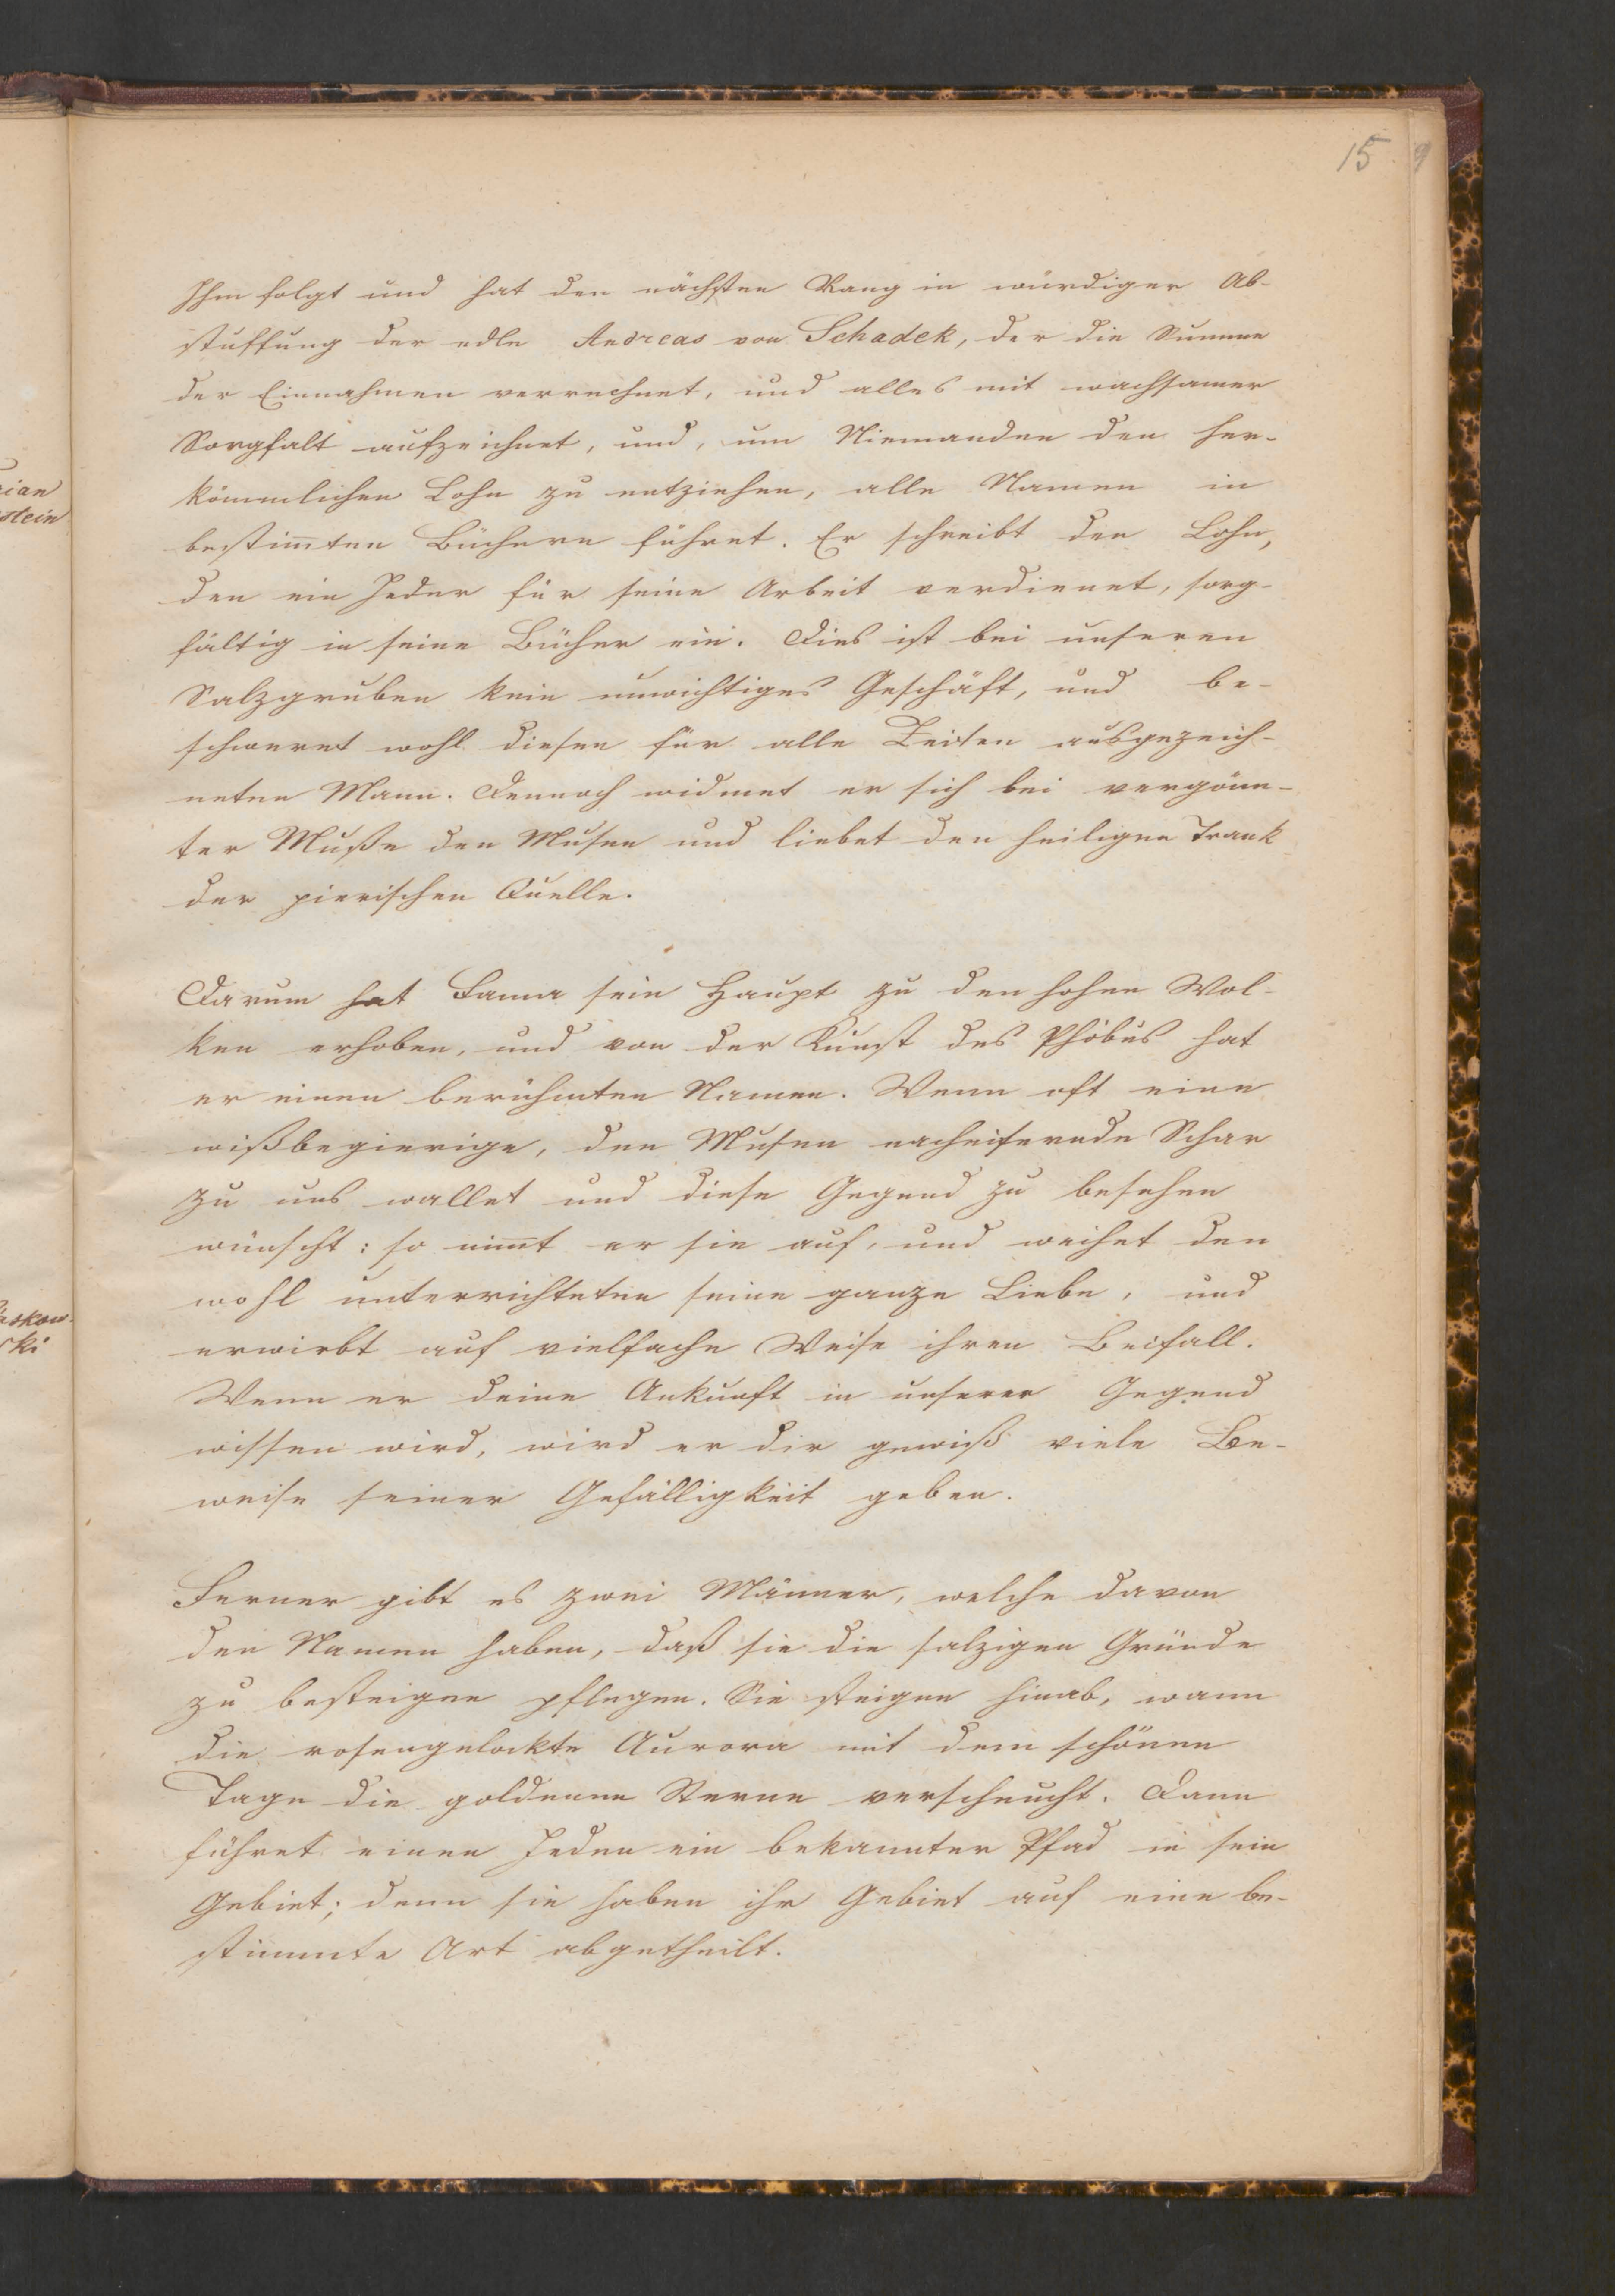 15 9
Ihm folgt und hat den nächsten Rang in würdiger Ab-
stuffung der edle Andreas von Schadek, der die Summe
der Einnahmen verrechnet, und alles mit wachsamer
Sorgfalt aufzeichnet, und, um Niemanden den her-
kömmlichen Lohn zu entziehen, alle Namen in
bestim̅ten Büchern führet. Er schreibt den Lohn,
den ein Jeder für seine Arbeit verdienet, sorg-
fältig in seine Bücher ein. Dies ist bei unseren
Salzgruben kein unwichtiges Geschäft, und be-
schweret wohl diesen für alle Zeiten ausgezeich-
neten Mann. Dennoch widmet er sich bei vergönn-
ter Muße den Musen und liebet den heiligen Trank
der pierischen Quelle.
Darum hat Fama sein Haupt zu den hohen Wol-
ken erhoben, und von der Kunst des Phöbus hat
er einen berühmten Namen. Wenn oft eine
wißbegierige, den Musen nacheifernde Schar
zu uns wallet und diese Gegend zu besehen
wünscht: so nim̅t er sie auf, und weihet den
wohl unterrichteten seine ganze Liebe, und
erwirbt auf vielfache Weise ihren Beifall.
Wenn er deine Ankunft in unserer Gegend
wissen wird, wird er dir gewiß viele Be-
weise seiner Gefälligkeit geben.
Ferner gibt es zwei Männer, welche davon
den Namen haben, daß sie die salzigen Gründe
zu besteigen pflegen. Sie steigen hinab, wann
die rosengelockte Aurora mit dem schönen
Tage die goldenen Sterne verscheucht. Dann
führet einen Jeden ein bekannter Pfad in sein
Gebiet; denn sie haben ihr Gebiet auf eine be-
stimmte Art abgetheilt.